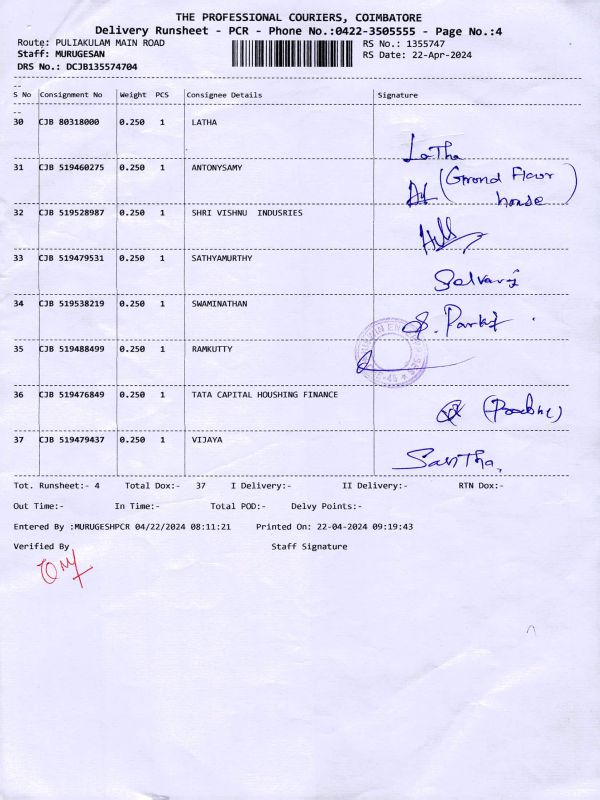 THE PROFESSIONAL COURIERS, COIMBATORE
Delivery Runsheet - PCR - Phone No.:0422-3505555 - Page No.:4
Route: PULIAKULAM MAIN ROAD RS No.: 1355747
Staff: MURUGESAN RS Date: 22-Apr-2024
DRS No.: DCJB135574704
S No Consignment No Weight PCS Consignee Details Signature
30 CJB 80318000 0.250 1 LATHA
Latha
31 CJB 519460275 0.250 1 ANTONYSAMY
(Grond Floor
house)
32 CJB 519528987 0.250 1 SHRI VISHNU INDUSRIES
33 CJB 519479531 0.250 1 SATHYAMURTHY
Selvaraj
34 CJB 519538219 0.250 1 SWAMINATHAN
35 CJB 519488499 0.250 1 RAMKUTTY
36 CJB 519476849 0.250 1 TATA CAPITAL HOUSHING FINANCE
37 CJB 519479437 0.250 1 VIJAYA
Savitha
Tot. Runsheet:- 4 Total Dox:- 37 I Delivery:- II Delivery:- RTN Dox:-
Out Time:- In Time:- Total POD:- Delvy Points:-
Entered By :MURUGESHPCR 04/22/2024 08:11:21 Printed On: 22-04-2024 09:19:43
Verified By Staff Signature